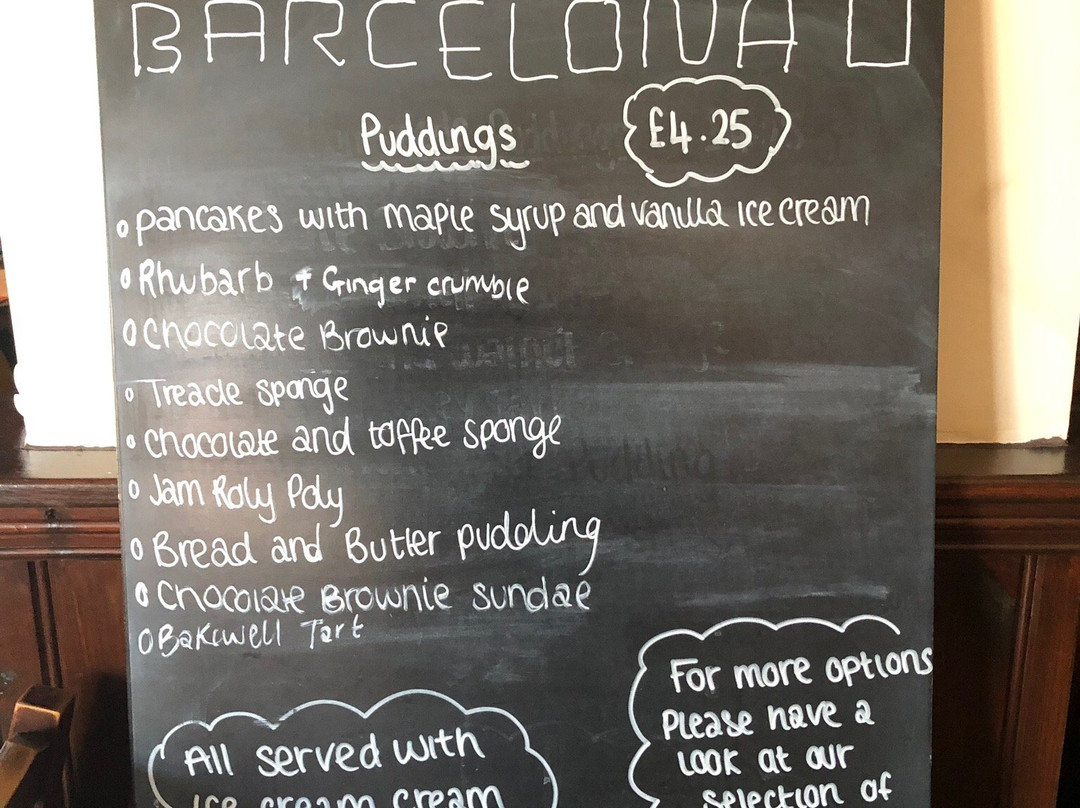 BARCELONA
Puddings
£4.25
pancakes with maple syrup and vanilla ice cream
Rhubarb + Ginger crumble
Chocolate Brownie
Treacle sponge
chocolate and toffee sponge
Jam Roly Poly
Bread and Butter pudding
Chocolate Brownie sundae
Bakewell Tart
All served with
ice cream cream
For more options
Please have a
look at our
selection of